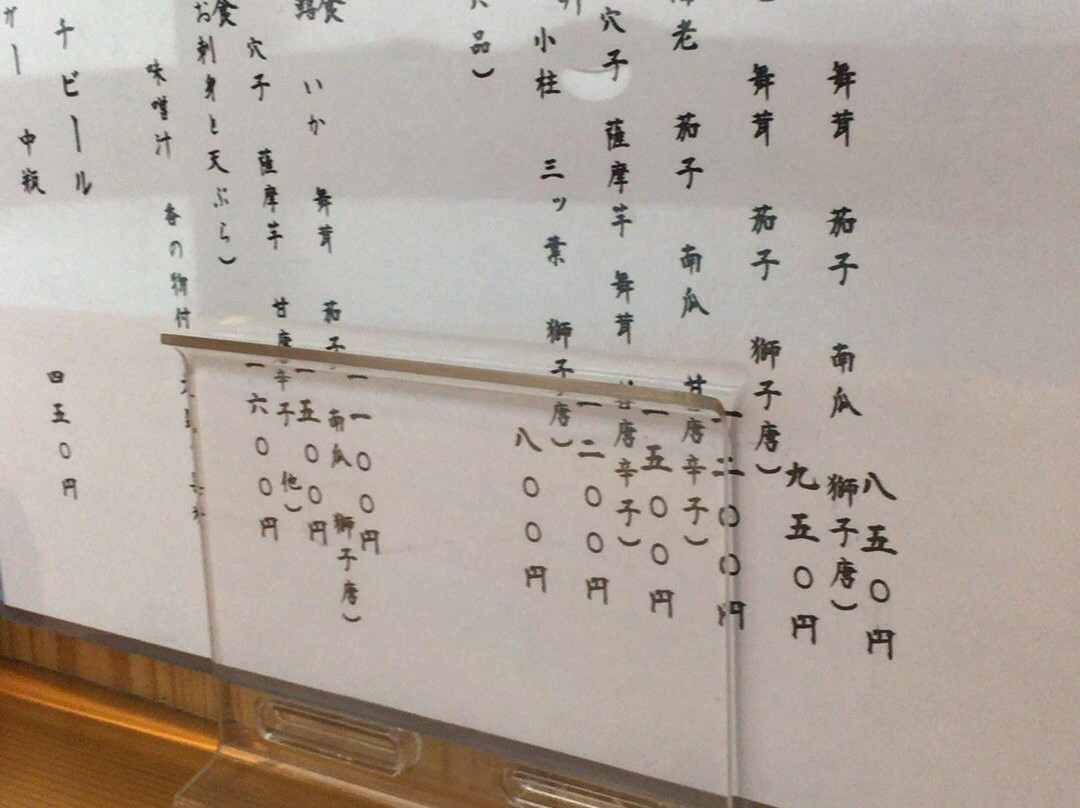 舞茸 茄子 南瓜 獅子唐）
八五〇円
舞茸 茄子 獅子唐）
九五〇円
老 茄子 南瓜 甘唐辛子）
一二〇〇円
穴子 薩摩芋 舞茸 甘唐辛子）
一五〇〇円
小柱 三ッ葉 獅子唐）
一二〇〇円
品）
八〇〇円
食 いか 舞茸 茄子 南瓜 獅子唐）
一一〇〇円
穴子 薩摩芋 甘唐辛子 他）
一五〇〇円
食
お刺身と天ぷら）
一六〇〇円
味噌汁 香の物付
チビール
四五〇円
ー 中瓶